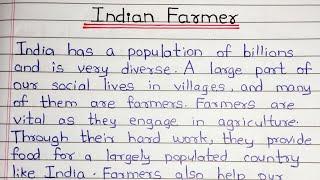 Indian Farmer
India has a population of billions
and is very diverse. A large part of
our social lives in villages, and many
of them are farmers. Farmers are
vital as they engage in agriculture.
Through their hard work, they provide
food for a largely populated country
like India. Farmers also help our